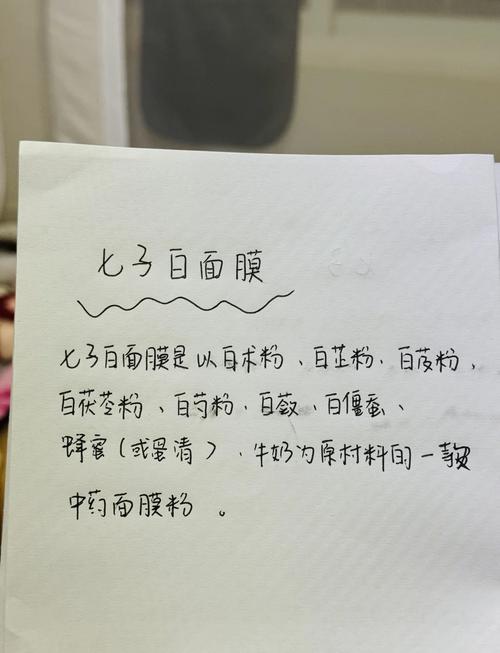 七子白面膜
七子白面膜是以白术粉、白芷粉、白芨粉,
白茯苓粉、白芍粉、白蔹、白僵蚕、
蜂蜜(或蛋清)、牛奶为原材料的一款
中药面膜粉。